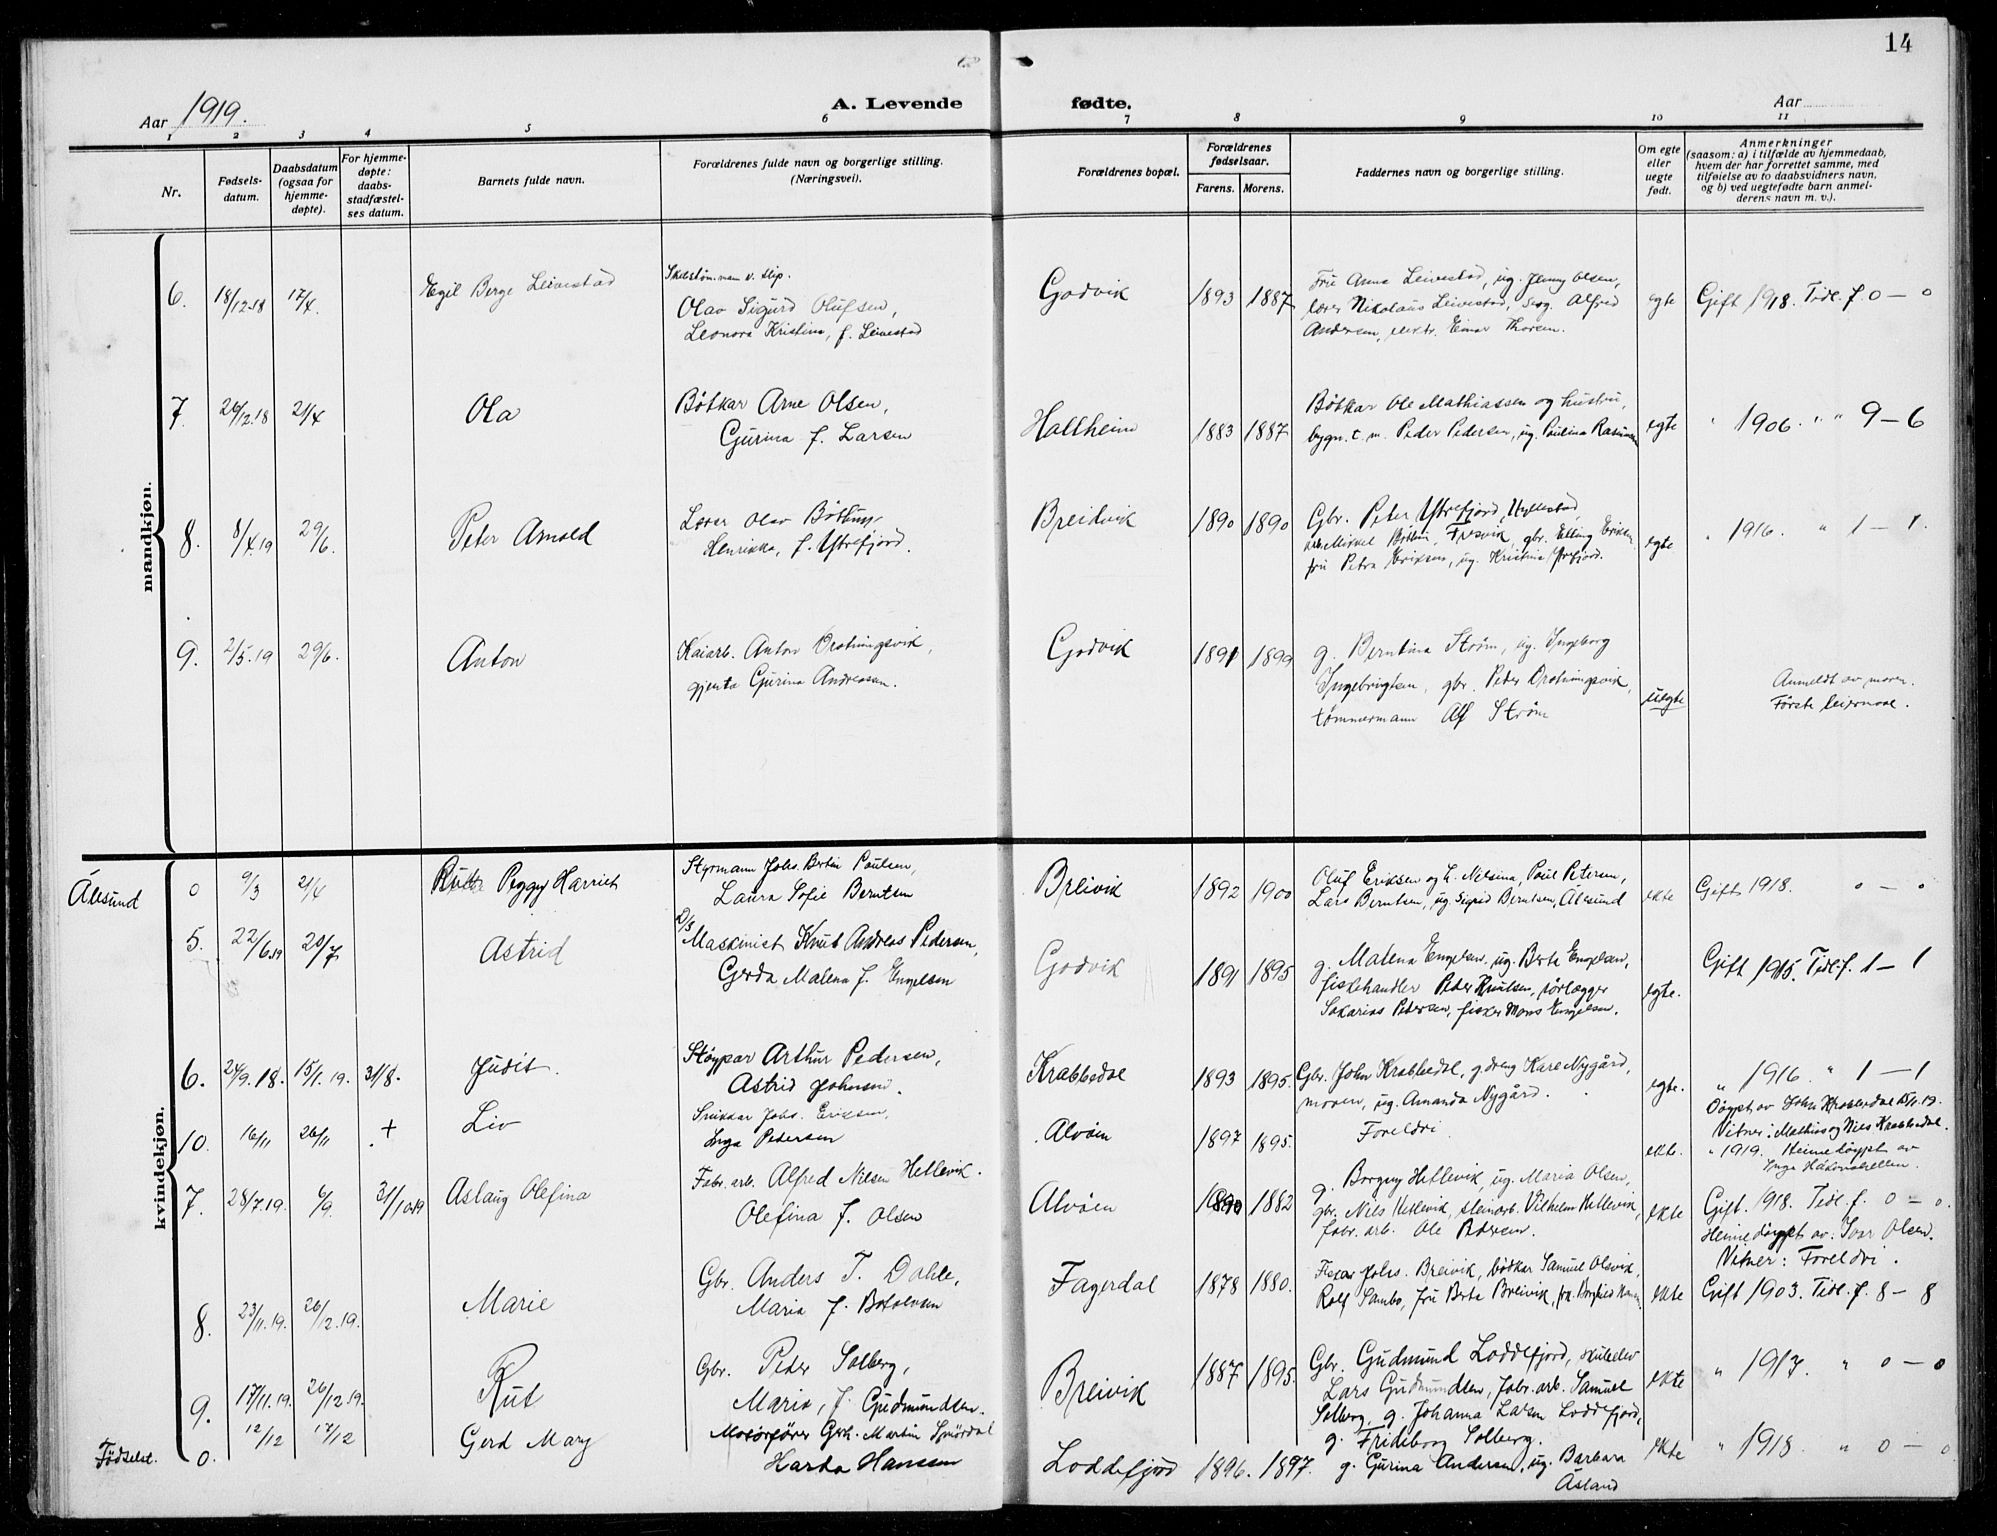 14
Aar 1919.
A. Levende fødte.
Aar
1 2 3 4 5 6 7 8 9 10 11
Nr.
Fødsels-
datum.
Daabsdatum
(ogsaa for
hjemme-
døpte).
For hjemme-
døpte:
daabs-
stadfæstel-
ses datum.
Barnets fulde navn.
Forældrenes fulde navn og borgerlige stilling.
(Næringsvei).
Forældrenes bopæl.
Forældrenes
fødselsaar.
Farens. Morens.
Faddernes navn og borgerlige stilling.
Om egte
eller
uegte
født.
Anmerkninger
(saasom: a) i tilfælde av hjemmedaab,
hvem der har forrettet samme, med
tilføielse av to daabsvidners navn,
og b) ved uegtefødte barn anmel-
derens navn m. v.).
mandkjøn.
6. 18/12.18 17/4. Egil Berge Leivestad
Olav Sigurd Olufsen,
Leonora Kristina, f. Leivestad
Godvik 1893 1887
Fru Anna Leivestad, ug. Jenny Olsen,
lærer Nikolaus Leivestad, Alfred
Andersen, elektr. Einar Thorsen.
egte Gift 1918. Tidl. f. 0 – 0
7. 26/12.18 21/4 Ola
Bøtkar Arne Olsen,
Gurina f. Larsen
Hallheim 1883 1887
Bøtkar Ole Mathiassen og hustru,
bygn. t. m. Peder Pedersen, ug. Paulina Rasmussen
egte " 1906. " " 9 – 6
8. 8/4.19 29/6. Peter Arnold
Lærer Olav Böttun,
Henrikka, f. Ytrefjord.
Breidvik 1890 1890
Gbr. Peter Ytrefjord, Hyllestad,
Mikkel Böttun, Fresvik, gbr. Elling Eriksen
fru Petra Eriksen, ug. Kristina Ytrefjord.
egte " 1916. " 1 – 1.
9. 2/5.19 29/6. Anton
Kaiarb. Anton Drotningsvik,
gjenta Gurina Andreassen.
Godvik 1891 1899
g. Berntina Strøm, ug. Ingeborg
Ingebrigtsen, gbr. Peder Drotningsvik,
tømmermann Alf Strøm
uegte
Anmeldt av moren.
Første leiermaal.
kvindekjøn.
Ålesund 0 9/3 21/4 Peggy Harriet
Styrmann Johs. Bertin Paulsen,
Laura Sofie Berntsen
Breivik 1892 1900
Oluf Eriksen og h. Nelsina, Paul Petersen,
Lars Berntsen, ug. Sigrid Berntsen, Ålesund
ekte Gift 1918. 0 – 0
5. 22/6.19 20/7 Astrid
D/S
Maskinist Knut Andreas Pedersen,
Gerda Malena f. Engelsen
Godvik 1891 1895
g. Malena Engelsen, ug. Berta Engelsen,
fiskehandler Peder Knutsen, rørlegger
Sakarias Petersen, fisker Mons Engelsen.
egte. Gift 1915. Tidl. f. 1 – 1
6. 24/9.18. 15/1.19. 31/8. Judit.
Støypar Arthur Pedersen,
Astrid Johnsen.
Krabbedal 1893 1895.
Gbr. John Krabbedal, g. dreng Kare Nygård,
moren, ug. Amanda Nygård.
egte. " 1916 " 1 – 1
Døypt av John Krabbedal 15/1.19.
Vitner: Mathias og Nils Krabbedal.
10. 16/11 26/11 + Liv
Snikkar Johs. Eriksen,
Inga Pedersen
Alvøen 1897 1895.
Foreldri
ekte. " 1919. Heimedøypt av
Inga Håkonshellen.
7. 28/7.19. 6/9. 31/10.19 Aslaug Olefina
Fabr. arb. Alfred Nilsen Hetlevik.
Olefina f. Olsen
Alvøen 1890 1882
g. Borgny Hetlevik, ug. Maria Olsen,
gbr. Nils Hetlevik, steinarb. Vilhelm Hetlevik,
fabr. arb. Ole Pedersen.
ekte Gift. 1918. Tidl. f. 0 – 0.
Heimedøypt av: Ivar Olsen.
Vitner: Foreldri.
8. 23/11.19. 26/12.19. Marie
Gbr. Anders T. Dahle,
Maria f. Botolvsen
Fagerdal 1878 1880.
Fisker Johs. Breivik, bødkar Samuel Olsvik,
Rolf Sambo, fru Berta Breivik, frk. Borghild Hansen
ekte Gift 1903. Tidl. f. 8 – 8
9. 17/11.19. 26/12.19. Rut
Gbr. Peder Solberg,
Maria, f. Gudmundsen.
Breivik 1887 1895.
Gbr. Gudmund Loddefjord, skuleelev
Lars Gudmundsen, fabr. arb. Samuel
Solberg, g. Johanna Larsen Loddefjord,
g. Frideborg Solberg.
ekte " 1917. " 0 – 0
Födselst. 0. 12/12 17/12 Gerd Mary
Motorfører Grh. Martin
Harda Hanssen
Loddefjord 1896. 1897.
g. Gurina Andersen, ug. Barbara
Åsland
ekte " 1918. " 0 – 0